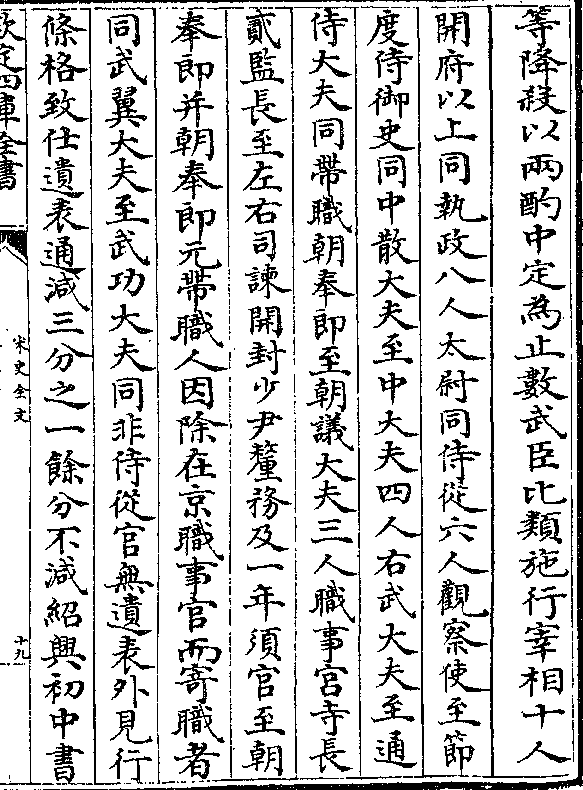 等降殺以兩酌中定為止數武臣比類施行宰相十人
開府以上同執政八人太尉同侍從六人觀察使至節
度侍御史同中散大夫至中大夫四人右武大夫至通
侍大夫同帶職朝奉郎至朝議大夫三人職事官寺長
貳監長至左右司諫開封少尹釐務及一年須官至朝
奉郎并朝奉郎元帶職人因除在京職事官而寄職者
同武翼大夫至武功大夫同非侍從官無遺表外見行
條格致仕遺表通減三分之一餘分不減紹興初中書
欽定四庫全書
宋史全文
十九